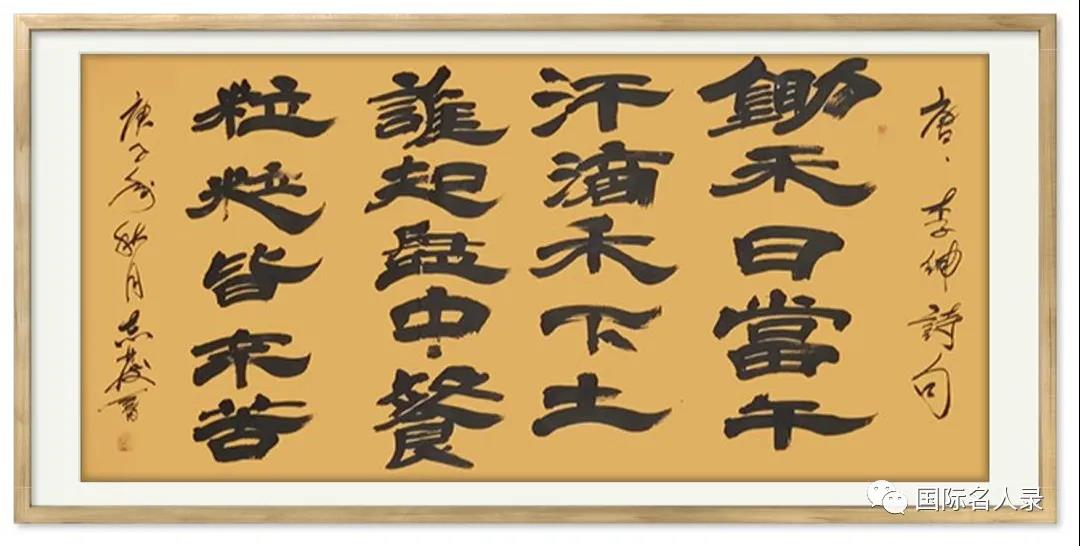 唐、李紳詩句
鋤禾日當午
汗滴禾下土
誰起盤中餐
粒粒皆辛苦
庚子 秋月志
国际名人录